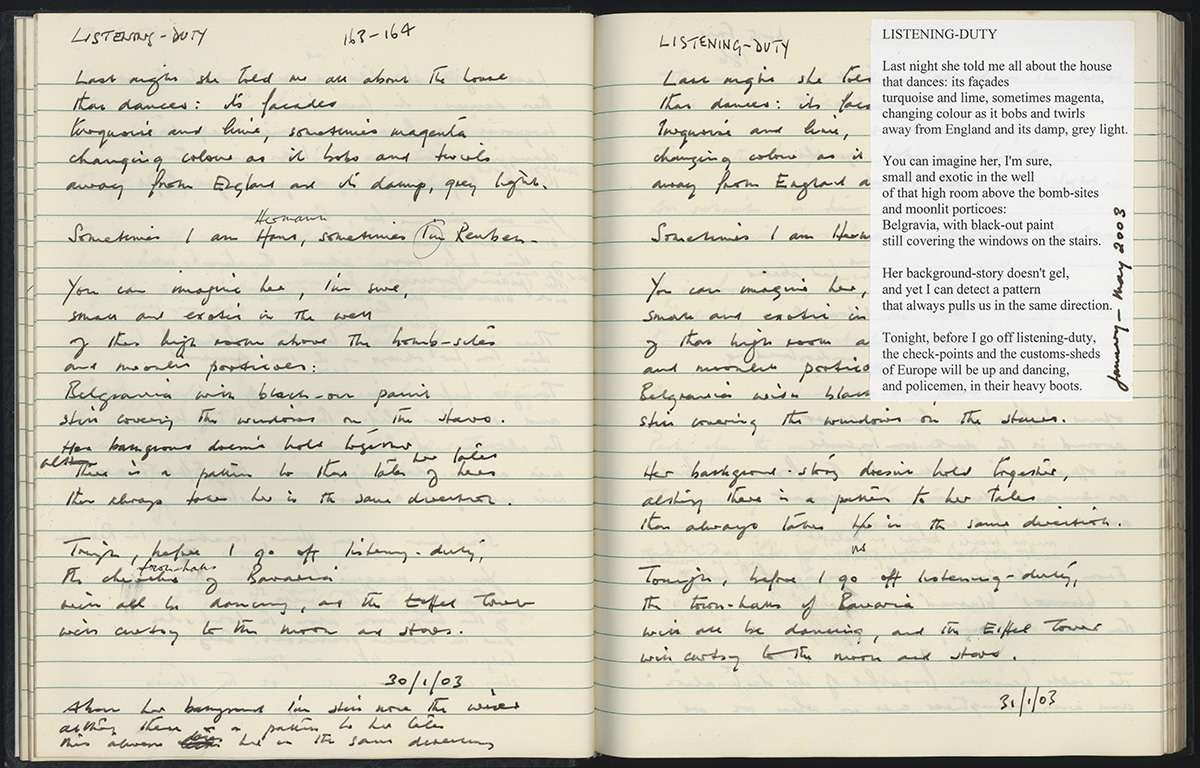 LISTENING-DUTY 163-164
Last night she told me all about the house
that dances: its façades
turquoise and lime, sometimes magenta
changing colour as it bobs and twirls
away from England and its damp, grey light.
Hermann
Sometimes I am Hans, sometimes Reuben.
You can imagine her, I'm sure,
small and exotic in the well
of this high room above the bomb-sites
and moonlit porticoes:
Belgravia with black-out paint
still covering the windows on the stairs.
Her background doesn't hold together
her tales
There is a pattern to these tales of hers
that always her in the same direction.
Tonight, before I go off listening-duty,
town-halls
the of Bavaria
will all be dancing, and the Eiffel Tower
will curtsy to the moon and stars.
30/1/03
About her background I'm still none the wiser
although there is a pattern to her tales
this always her in the same direction
LISTENING-DUTY
Last night she
that dances: its
Turquoise and lime,
changing colour as it
away from England
Sometimes I am
You can imagine her,
small and exotic in
of that high room
and moonlit
Belgravia with
still covering the windows on the stairs.
Her background-story doesn't hold together,
although there is a pattern to her tales
that always takes in the same direction.
us
Tonight, before I go off listening-duty,
the town-halls of Bavaria
will all be dancing, and the Eiffel Tower
will curtsy to the moon and stars.
31/1/03
LISTENING-DUTY
Last night she told me all about the house
that dances: its façades
turquoise and lime, sometimes magenta,
changing colour as it bobs and twirls
away from England and its damp, grey light.
You can imagine her, I'm sure,
small and exotic in the well
of that high room above the bomb-sites
and moonlit porticoes:
Belgravia, with black-out paint
still covering the windows on the stairs.
Her background-story doesn't gel,
and yet I can detect a pattern
that always pulls us in the same direction.
Tonight, before I go off listening-duty,
the check-points and the customs-sheds
of Europe will be up and dancing,
and policemen, in their heavy boots.
January - May 2003